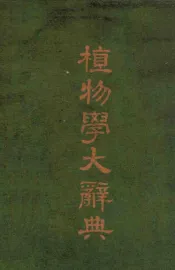 植物學大辭典